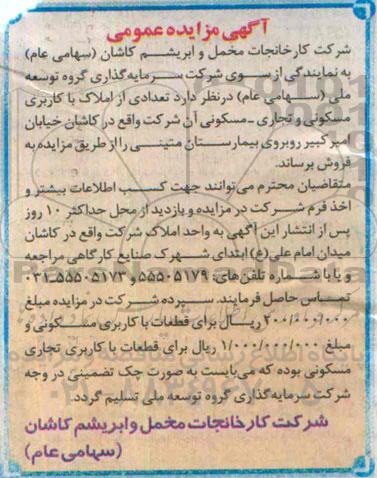 آگهی مزایده عمومی
شرکت کارخانجات مخمل و ابریشم کاشان (سهامی عام)
به نمایندگی از سوی شرکت سرمایه‌گذاری گروه توسعه
ملی (سهامی عام) درنظر دارد تعدادی از املاک با کاربری
مسکونی و تجاری - مسکونی آن شرکت واقع در کاشان خیابان
امیرکبیر روبروی بیمارستان متینی را از طریق مزایده به
فروش برساند.
متقاضیان محترم می‌توانند جهت کسب اطلاعات بیشتر و
اخذ فرم شرکت در مزایده و بازدید از محل حداکثر ۱۰ روز
پس از انتشار این آگهی به واحد املاک شرکت واقع در کاشان
میدان امام علی(ع) ابتدای شهرک صنایع کارگاهی مراجعه
و یا با شماره تلفن‌های: ۵۵۵۰۵۱۷۹ و ۵۵۵۰۵۱۷۳-۰۳۱
تماس حاصل فرمایند. سپرده شرکت در مزایده مبلغ
۲۰۰/۰۰۰/۰۰۰ ریال برای قطعات با کاربری مسکونی و
مبلغ ۱/۰۰۰/۰۰۰/۰۰۰ ریال برای قطعات با کاربری تجاری
مسکونی بوده که می‌بایست به صورت چک تضمینی در وجه
شرکت سرمایه‌گذاری گروه توسعه ملی تسلیم گردد.
شرکت کارخانجات مخمل وابریشم کاشان
(سهامی عام)